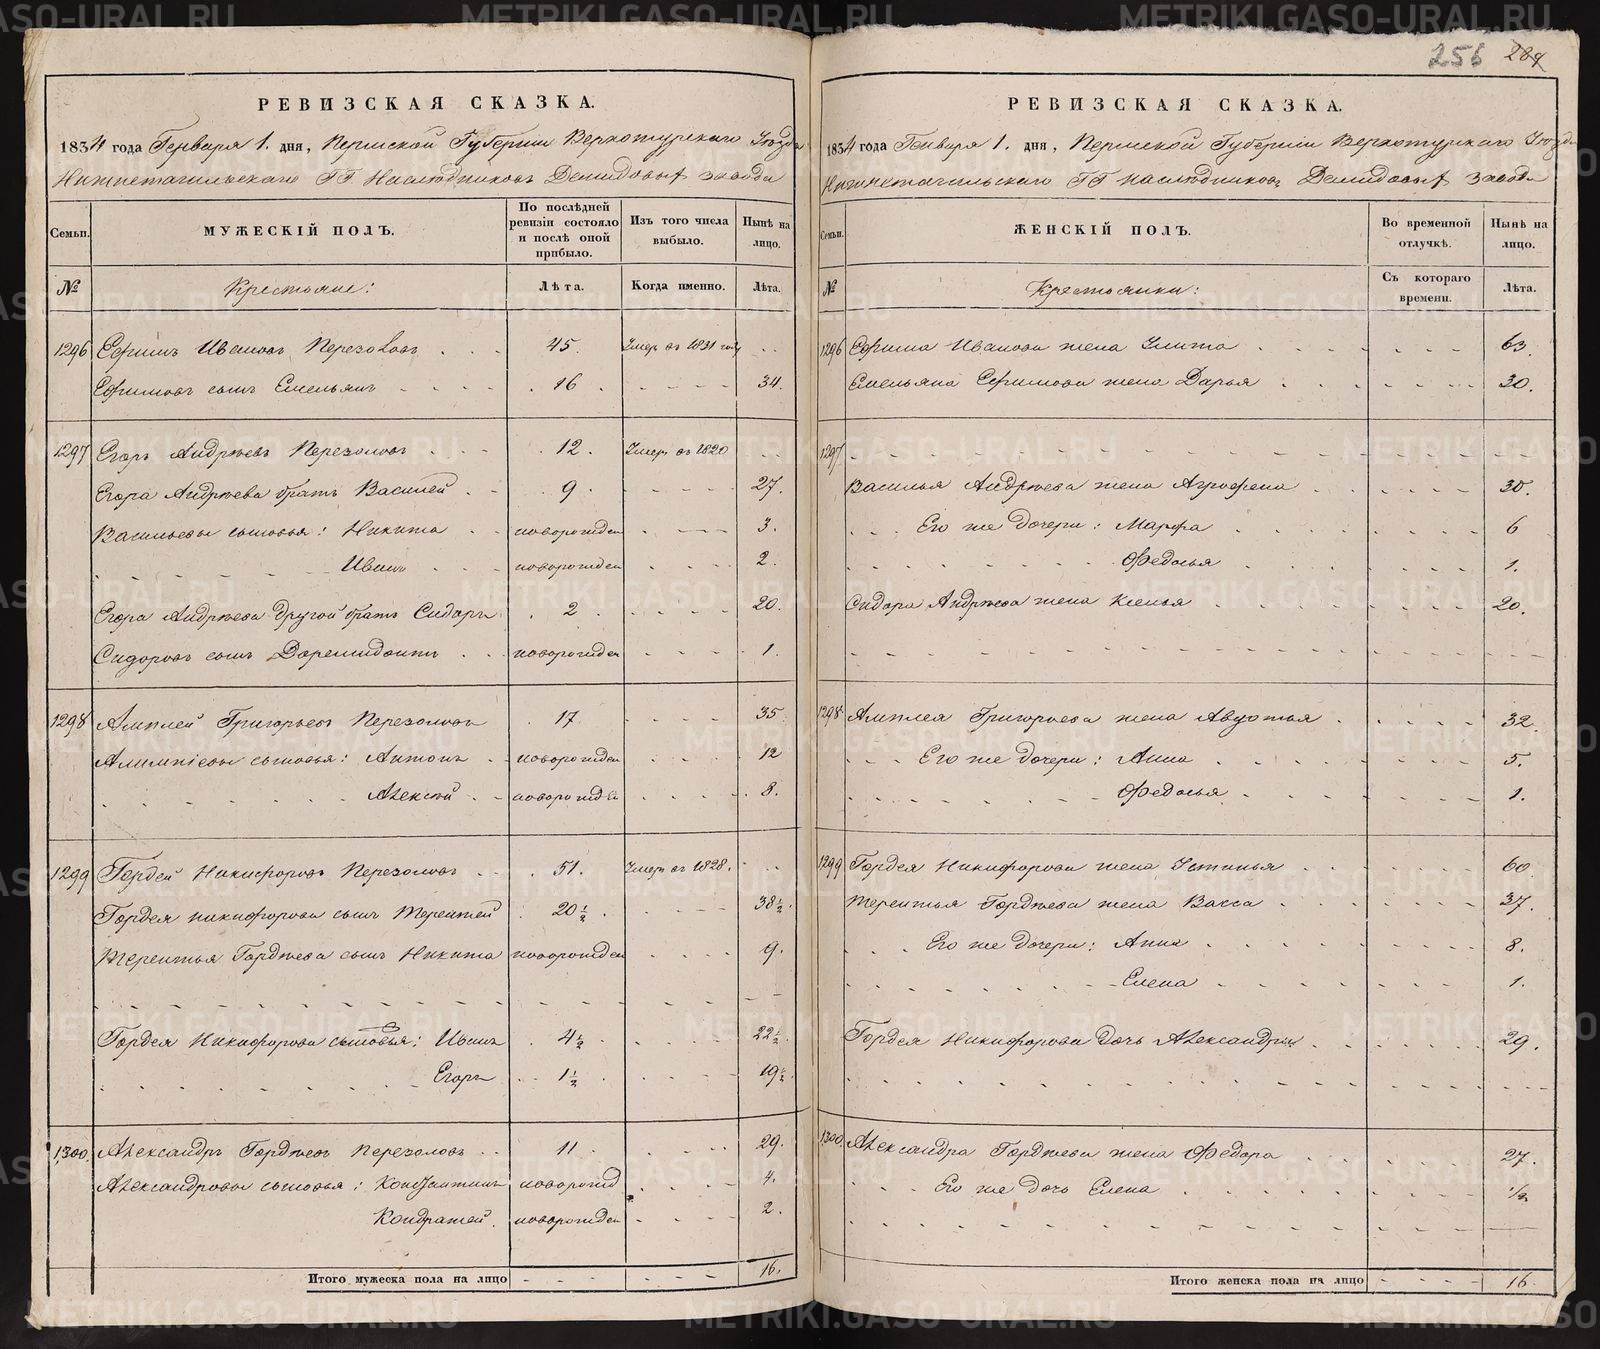 256 287
РЕВИЗСКАЯ СКАЗКА.
1834 года Генваря 1. дня, Пермской Губернии Верхотурскаго Уѣзда
Нижнетагильскаго ГГ Наслѣдниковъ Демидовыхъ завода
Семьи. МУЖЕСКІЙ ПОЛЪ. По послѣдней ревизіи состояло и послѣ оной прибыло. Изъ того числа выбыло. Нынѣ на лицо.
№ Крестьяне: Лѣта. Когда именно. Лѣта.
1296 Ефимъ Ивановъ Перезоловъ 45. Умеръ въ 1831 году
Ефимовъ сынъ Емельянъ 16 34.
1297 Егоръ Андрѣевъ Перезоловъ 12. Умеръ въ 1820
Егора Андрѣева братъ Василей 9 27.
Васильевы сыновья: Никита новорожден 3.
Иванъ новорожден 2.
Егора Андрѣева другой братъ Сидоръ 2 20.
Сидоровъ сынъ Доремидонтъ новорожден 1.
1298 Алиплей Григорьевъ Перезоловъ 17 35
Алимпіевы сыновья: Антонъ новорожден 12
Алексѣй новорожден 8.
1299 Гордей Никифоровъ Перезоловъ 51. Умеръ въ 1828.
Гордея Никифорова сынъ Терентей 20½ 38½.
Терентья Гордѣева сынъ Никита новорожден 9.
Гордея Никифорова сыновья: Иванъ 4½ 22½
Егоръ 1½ 19½
1300. Александръ Гордѣевъ Перезоловъ 11 29.
Александровы сыновья: Константинъ новорожд 4.
Кондратей. новорожден 2.
Итого мужеска пола на лицо 16.
РЕВИЗСКАЯ СКАЗКА.
1834 года Генваря 1. дня, Пермской Губерніи Верхотурскаго Уѣзда
Нижнетагильскаго ГГ Наслѣдниковъ Демидовыхъ завода
Семьи. ЖЕНСКІЙ ПОЛЪ. Во временной отлучкѣ. Нынѣ на лицо.
№ Крестьянки: Съ котораго времени. Лѣта.
1296 Ефима Иванова жена Улита 63.
Емельяна Ефимова жена Дарья 30.
1297
Василья Андрѣева жена Агрофена 30.
Его же дочери: Марфа 6
Федосья 1.
Сидора Андрѣева жена Ксенья 20.
1298 Алиплея Григорьева жена Авдотья 32.
Его же дочери: Анна 5.
Федосья 1.
1299 Гордея Никифорова жена Устинья 60.
Терентья Гордѣева жена Васса 37.
Его же дочери: Анна 8.
Елена 1.
Гордея Никифорова дочь Александра 29.
1300 Александра Гордѣева жена Федора 27.
Его же дочь Елена ½
Итого женска пола на лицо 16
METRIKI.GASO-URAL.RU